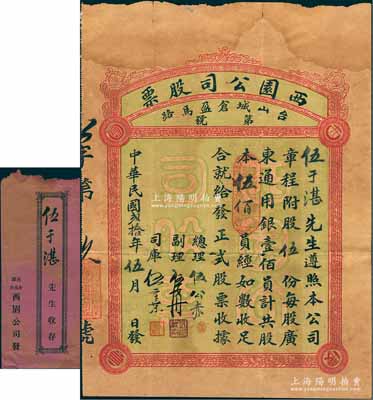 西園公司股票
台山城倉盈馬路
第號
伍于湛先生遵照本公司
章程附股伍份每股廣
東通用銀壹佰員計共股
本伍佰員經如數收足
合就給發正式股票收據
總理伍公赤
副理
司庫
中華民國弍拾年伍月日發
第號
伍于湛先生收存
西園公司發
上海陽明拍賣